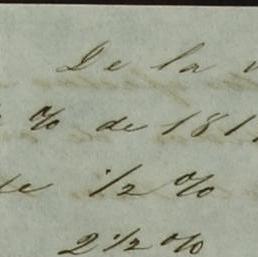 De la
% de 181
te 1/2 %
2 1/2 %